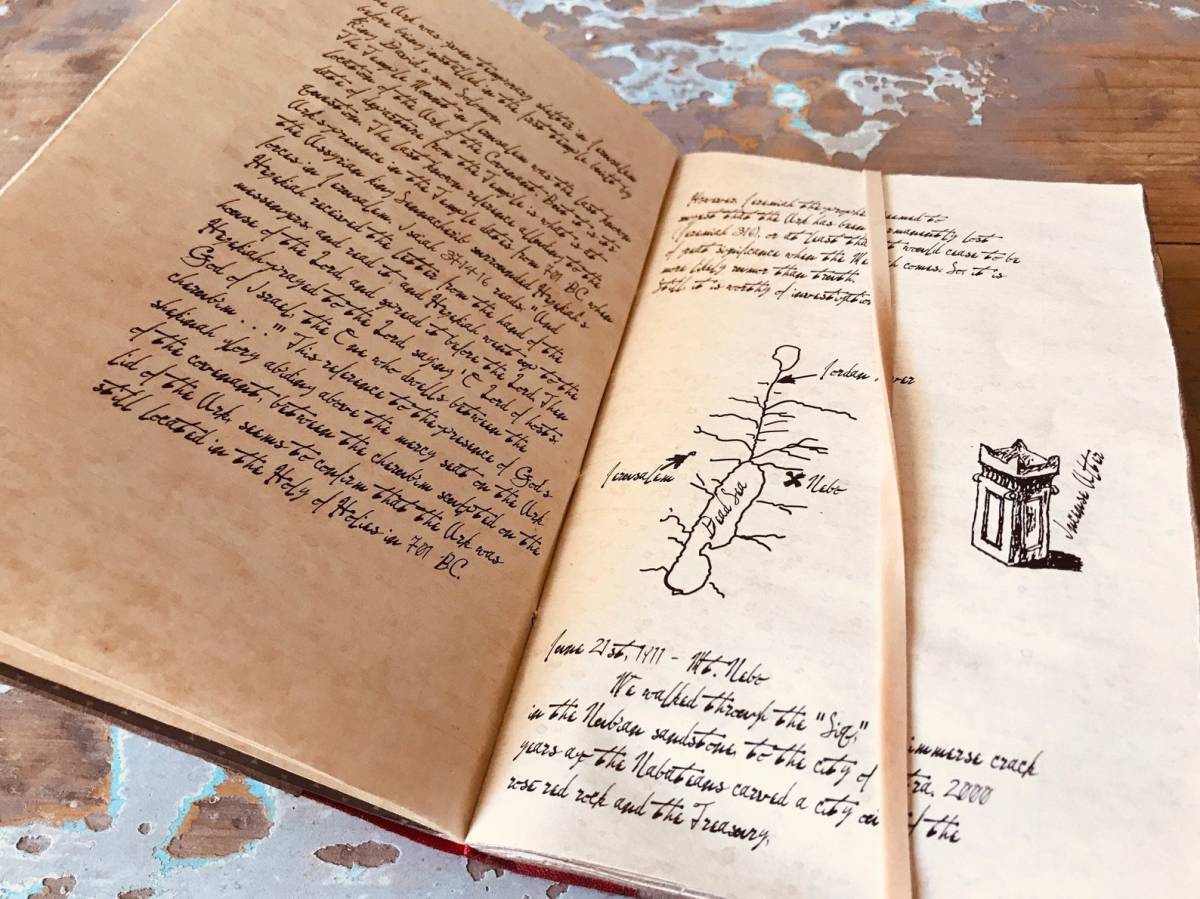 Ark was given temporary shelter in Jerusalem
before being installed in the first temple built by
King David's son Solomon.
The Temple Mount in Jerusalem was the last known
location of the Ark of the Covenant. Date of its
theft or hiding from the Temple is under much
The last known reference alluding to the
Ark's presence in the Temple dates from 701 BC, when
the Assyrian king Sennacherib surrounded Hezekiah's
forces in Jerusalem. Isaiah 37:14-16 reads: "And
Hezekiah recieved the letter from the hand of the
messengers, and read it; and Hezekiah went up to the
house of the Lord, and spread it before the Lord. Then
Hezekiah prayed to the Lord saying: 'O Lord of hosts,
God of Israel, the One who dwells between the
cherubim . . .'" This reference to the presence of God's
shekinah glory abiding above the mercy seat on the Ark
of the covenant, between the cherubim sculpted on the
lid of the Ark, seems to confirm that the Ark was
still located in the Holy of Holies in 701 BC.
However Jeremiah the seemed to
suggest that the Ark has been lost
(Jeremiah 3:16), or at least would cease to be
of great significance when the comes. So it is
more likely rumor than truth.
Still it is worthy of investigation
Jordan
Jerusalem
Nebo
Dead Sea
Incense Altar
June 21st, 1911 - Mt. Nebo
We walked through the "Siq,"
immerse crack
in the Nubian sandstone, to the city of 2000
years ago the Nabateans carved a city the
rose red rock and the Treasury.